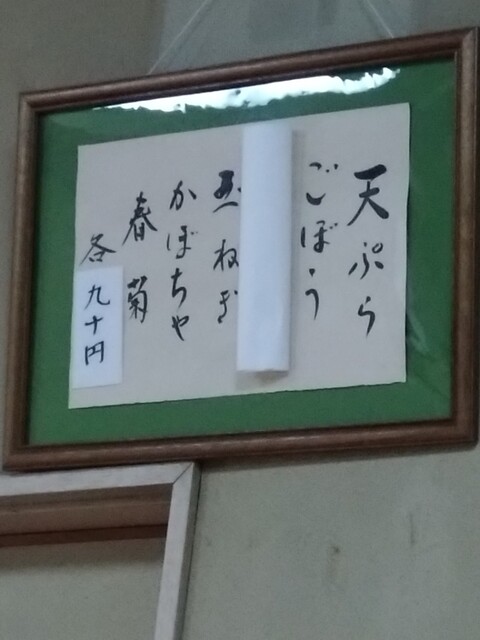 天ぷら
ごぼう
玉ねぎ
かぼちゃ
春菊
各九十円